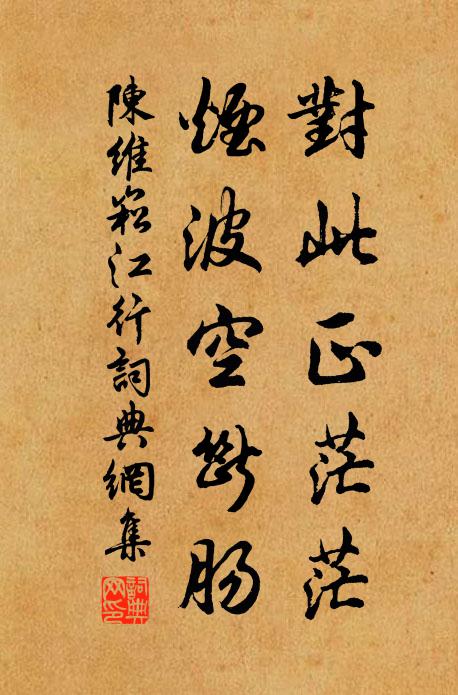 對此正茫茫
煙波空斷腸
陳維崧江行詞典網集
詞典
网印